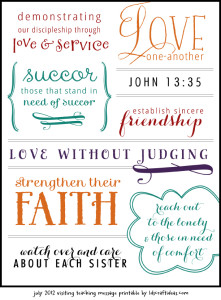 demonstrating
our discipleship through
love & service
LOVE
one-another
succor
those that stand in
need of succor
JOHN 13:35
establish sincere
friendship
LOVE WITHOUT JUDGING
strengthen their
FAITH
reach out
to the lonely
& those in need
of comfort
watch over and care
ABOUT EACH SISTER
july 2012 visiting teaching message printable by